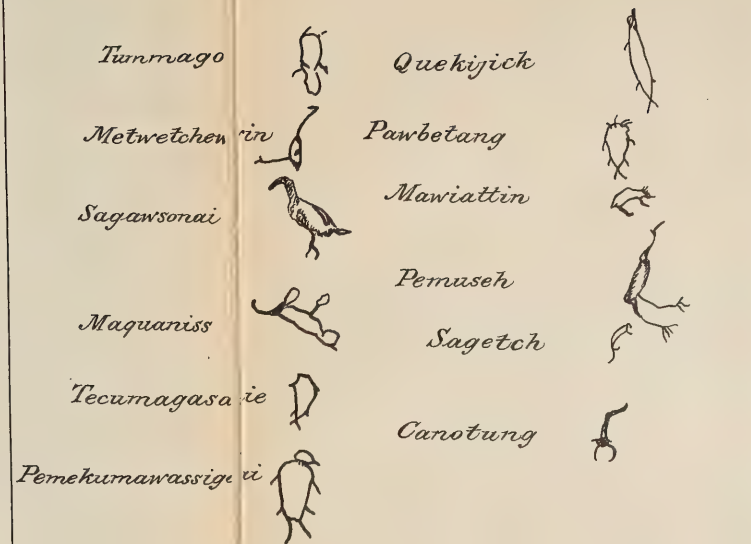 Tummago
Metwetchewin
Sagawsonai
Maquaniss
Tecumagasa ie
Pemekumawassig
Quekijick
Pawbetang
Mawiattin
Pemuseh
Sagetch
Canotung